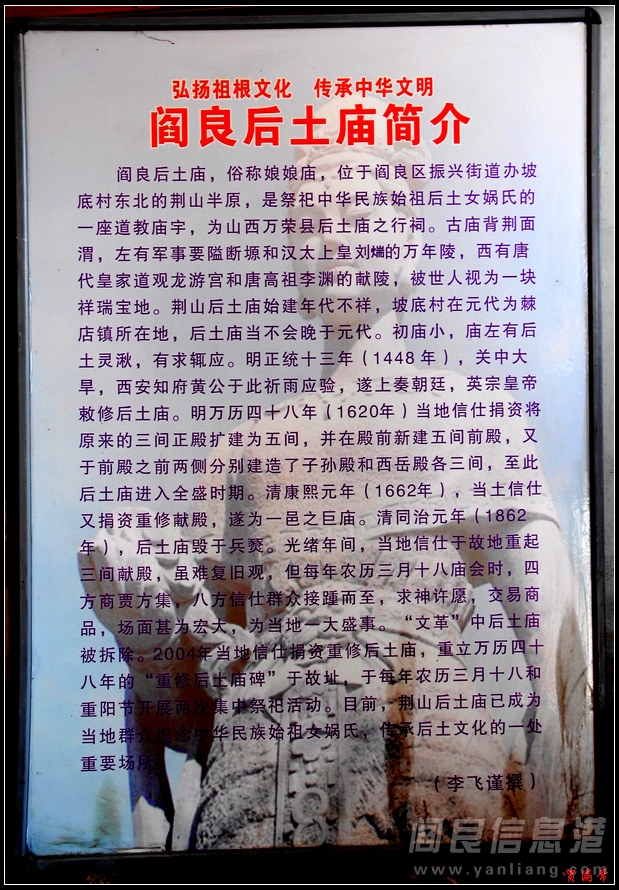 弘扬祖根文化 传承中华文明
阎良后土庙简介
阎良后土庙，俗称娘娘庙，位于阎良区振兴街道办坡
底村东北的荆山半原，是祭祀中华民族始祖后土女娲氏的
一座道教庙宇，为山西万荣县后土庙之行祠。古庙背荆面
渭，左有军事要隘断塬和汉太上皇刘煓的万年陵，西有唐
代皇家道观龙游宫和唐高祖李渊的献陵，被世人视为一块
祥瑞宝地。荆山后土庙始建年代不祥，坡底村在元代为棘
店镇所在地，后土庙当不会晚于元代。初庙小，庙左有后
土灵湫，有求辄应。明正统十三年（1448年），关中大
旱，西安知府黄公于此祈雨应验，遂上秦朝廷，英宗皇帝
敕修后土庙。明万历四十八年（1620年）当地信仕捐资将
原来的三间正殿扩建为五间，并在殿前新建五间前殿，又
于前殿之前两侧分别建造了子孙殿和西岳殿各三间，至此
后土庙进入全盛时期。清康熙元年（1662年），当土信仕
又捐资重修献殿，遂为一邑之巨庙。清同治元年（1862
年），后土庙毁于兵燹。光绪年间，当地信仕于故地重起
三间献殿，虽难复旧观，但每年农历三月十八庙会时，四
方商贾方集，八方信仕群众接踵而至，求神许愿，交易商
品，场面甚为宏大，为当地一大盛事。“文革”中后土庙
被拆除。2004年当地信仕捐资重修后土庙，重立万历四十
八年的“重修后土庙碑”于故址，于每年农历三月十八和
重阳节开展两次集中祭祀活动。目前，荆山后土庙已成为
当地群众追念中华民族始祖女娲氏，传承后土文化的一处
重要场所
（李飞谨撰）
阎良信息港
www.yanliang.com